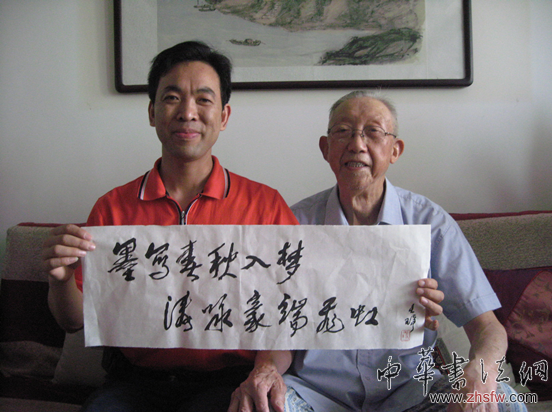 墨写春秋入梦
涛咏豪端飞虹
中華书法网
www.zhsfw.com